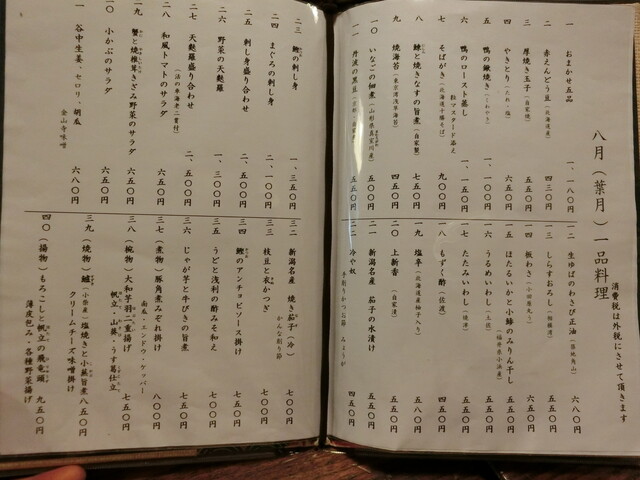 八月（葉月）一品料理
消費税は外税にさせて頂きます
一 おまかせ五品 一、一八〇円
二 赤えんどう豆（北海道産） 四三〇円
三 厚焼き玉子（自家焼） 五五〇円
四 やきとり（たれ・塩） 六五〇円
五 鴨の鍬焼き（くわやき） 一、一〇〇円
六 鴨のロースト蒸し 粒マスタード添え 一、一五〇円
七 そばがき（北海道十勝そば） 九〇〇円
八 鰊と焼きなすの旨煮（自家製） 七五〇円
九 焼海苔（東京湾浅草海苔） 四五〇円
一〇 いなごの佃煮（山形県真室川産） 五〇〇円
一一 丹波の黒豆 五五〇円
一二 生ゆばのわさび正油 六八〇円
一三 しらすおろし 五五〇円
一四 板わさ 六五〇円
一五 ほたるいかと小鰺のみりん干し（福井県小浜産） 五五〇円
一六 うるめいわし（土佐） 五五〇円
一七 たたみいわし（焼津） 五五〇円
一八 もずく酢（佐渡） 五五〇円
一九 塩辛（北海道産柚子入り） 五八〇円
二〇 上新香（自家漬） 五五〇円
二一 新潟名産 茄子の水漬け 五五〇円
二二 冷や奴 手削りかつお節 みょうが 四五〇円
二三 鰹の刺し身 一、三五〇円
二四 まぐろの刺し身 二、一〇〇円
二五 刺し身盛り合わせ 二、五〇〇円
二六 野菜の天麩羅 一、三〇〇円
二七 天麩羅盛り合わせ（活の車海老二尾付） 二、五〇〇円
二八 和風トマトのサラダ 六五〇円
二九 蟹と焼椎茸きざみ野菜のサラダ 六五〇円
三〇 小かぶのサラダ 六五〇円
三一 谷中生姜、セロリ、胡瓜 金山寺味噌 六八〇円
三二 新潟名産 焼き茄子（冷） かんな削り節 七〇〇円
三三 枝豆と衣かつぎ 七〇〇円
三四 鰹のアンチョビソース掛け 七〇〇円
三五 うどと浅利の酢みそ和え 七五〇円
三六 じゃが芋と牛びきの旨煮 七五〇円
三七（煮物）豚角煮みぞれ掛け 南瓜・エンドウ・ケッパー 八〇〇円
三八（椀物）大和芋羽二重揚げ 帆立・山葵・うす葛仕立 七五〇円
三九（焼物）鱸（小柴産）塩焼きと小蕪旨煮 クリームチーズ味噌掛け 八五〇円
四〇（揚物）もろこしと帆立の飛竜頭 薄皮包み・各種野菜揚げ 九五〇円